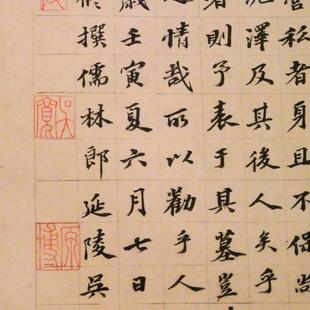 私者身且不保尚
澤及其後人矣乎
者則予表于其墓豈
情哉所以勸乎人
歲壬寅夏六月七日
修撰儒林郎延陵吳
吳寬
原博